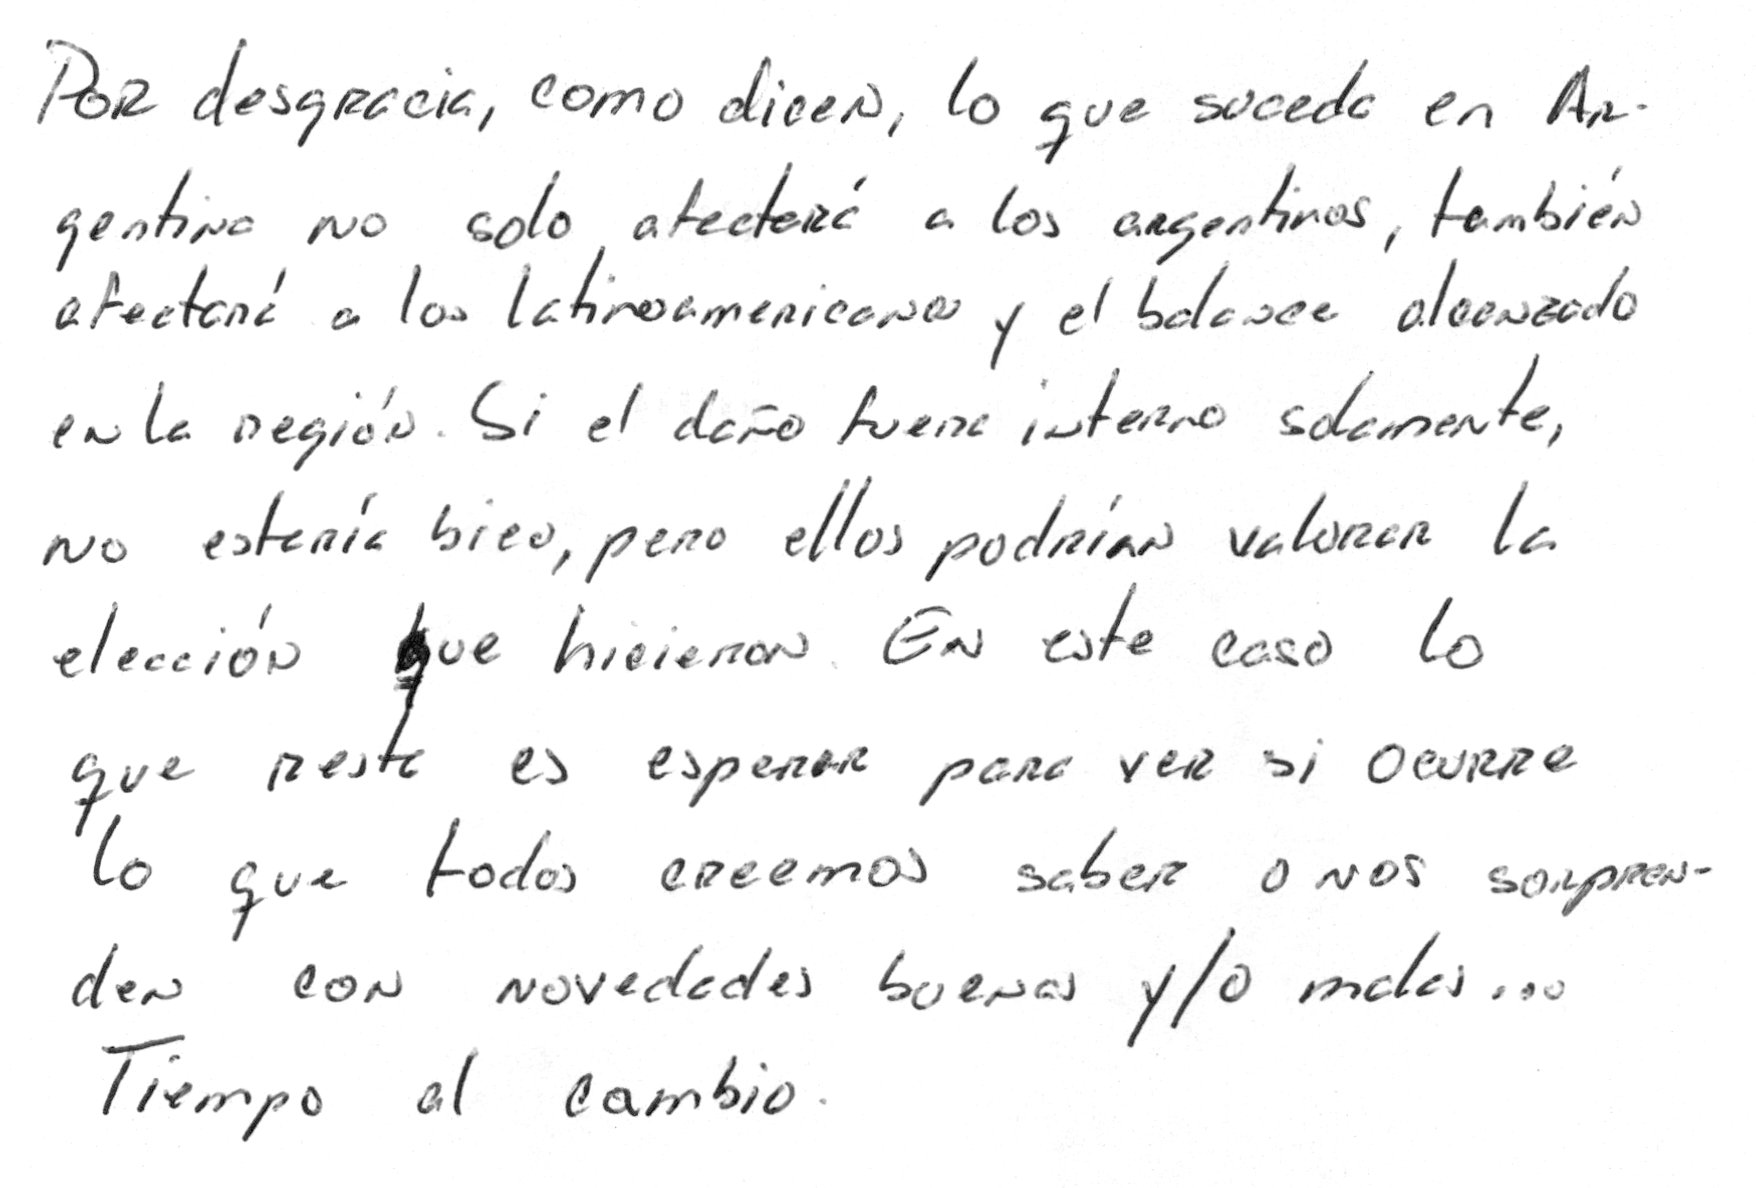 Por desgracia, como dicen, lo que suceda en Ar-
gentina no solo afectará a los argentinos, también
afectará a los latinoamericanos y el balance alcanzado
en la región. Si el daño fuera interno solamente,
no estaría bien, pero ellos podrían valorar la
elección que hicieron. En este caso lo
que resta es esperar para ver si ocurre
lo que todos creemos saber o nos sorpren-
den con novedades buenas y/o malas...
Tiempo al cambio.